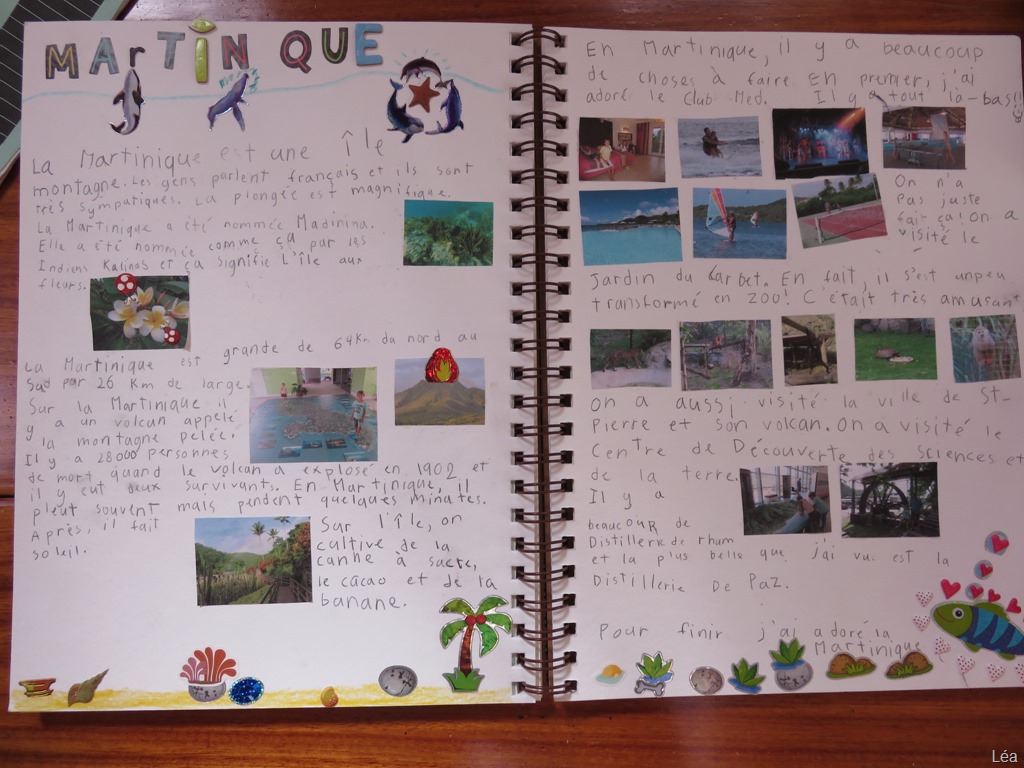 MArTiNiQUE
La Martinique est une île
montagne. Les gens parlent français et ils sont
très sympatiques. La plongée est magnifique.
La Martinique a été nommée Madinina.
Elle a été nommée comme ça par les
Indiens Kalinas et ça signifie L'île aux
fleurs.
La Martinique est grande de 64 Km du nord au
Sud par 26 Km de large.
Sur la Martinique il
y a un volcan appelé
la montagne pelée.
Il y a 28000 personnes
de mort quand le volcan a explosé en 1902 et
il y eut deux survivants. En Martinique, il
pleut souvent mais pendent quelques minutes.
Après, il fait
soleil.
Sur l'île, on
cultive de la
canne à sucre,
le cacao et de la
banane.
En Martinique, il y a beaucoup
de choses à faire. En premier, j'ai
adoré le Club Med. Il y a tout là-bas!!
On n'a
pas juste
fai ça! On a
visité le
Jardin du Carbet. En fait, il s'est unpeu
transformé en zoo! C'était très amusant
On a aussi visité la ville de St-
Pierre et son volcan. On a visité le
Centre de Découverte des Sciences et
de la terre.
Il y a
beaucour de
Distillerie de rhum
et la plus belle que j'ai vu est la
Distillerie De Paz.
Pour finir j'ai adoré la
Martinique
Léa